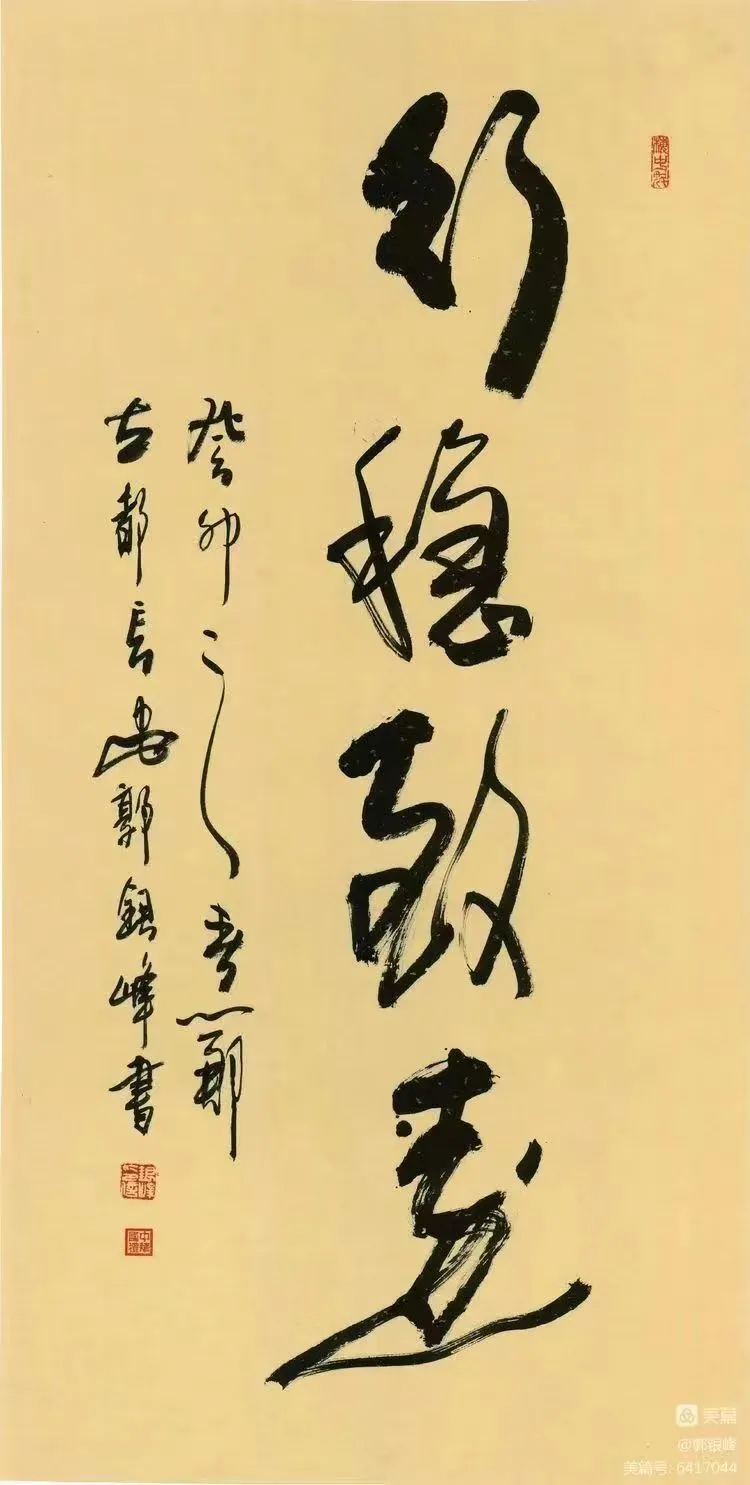 行穩致遠
癸卯之春
古都長安郭銀峰書
美篇
@郭银峰
美篇号: 6417044